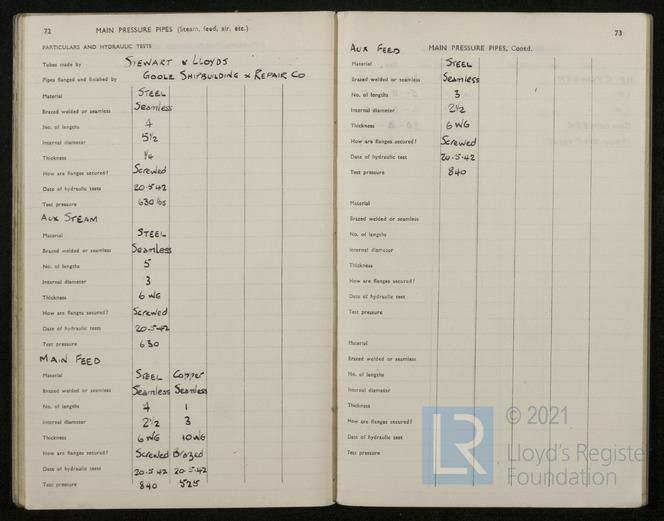 72 MAIN PRESSURE PIPES (Steam, feed, air, etc.)
PARTICULARS AND HYDRAULIC TESTS
Tubes made by STEWART & LLOYDS
Pipes flanged and finished by GOOLE SHIPBUILDING & REPAIR CO
Material STEEL
Brazed welded or seamless Seamless
No. of lengths 4
Internal diameter 5 1/2
Thickness 1/4
How are flanges secured? Screwed
Date of hydraulic tests 20-5-42
Test pressure 630 lbs
AUX STEAM
Material STEEL
Brazed welded or seamless Seamless
No. of lengths 5
Internal diameter 3
Thickness 6 WG
How are flanges secured? Screwed
Date of hydraulic tests 20-5-42
Test pressure 630
MAIN FEED
Material STEEL Copper
Brazed welded or seamless Seamless Seamless
No. of lengths 4 1
Internal diameter 2 1/2 3
Thickness 6 WG 10 WG
How are flanges secured? Screwed Brazed
Date of hydraulic tests 20-5-42 20-5-42
Test pressure 840 525
73
AUX FEED MAIN PRESSURE PIPES, Contd.
Material STEEL
Brazed welded or seamless Seamless
No. of lengths 3
Internal diameter 2 1/2
Thickness 6 WG
How are flanges secured? Screwed
Date of hydraulic test 20-5-42
Test pressure 840
Material
Brazed welded or seamless
No. of lengths
Internal diameter
Thickness
How are flanges secured?
Date of hydraulic test
Test pressure
Material
Brazed welded or seamless
No. of lengths
Internal diameter
Thickness
How are flanges secured?
Date of hydraulic test
Test pressure
LR
© 2021
Lloyd's Register
Foundation